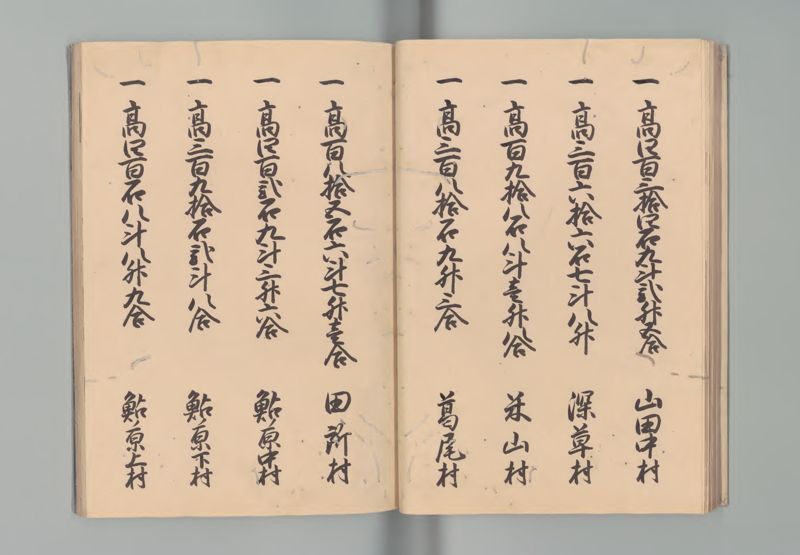 一 高四百六拾四石九斗弐升五合 山田中村
一 高三百六拾六石七斗八升 深草村
一 高百九拾八石八斗壱升八合 米山村
一 高三百八拾石九升三合 葛尾村
一 高百八拾五石六斗七升壱合 田所村
一 高四百弐石九斗三升六合 鮎原中村
一 高三百九拾石弐斗八合 鮎原下村
一 高四百石八斗八升九合 鮎原上村